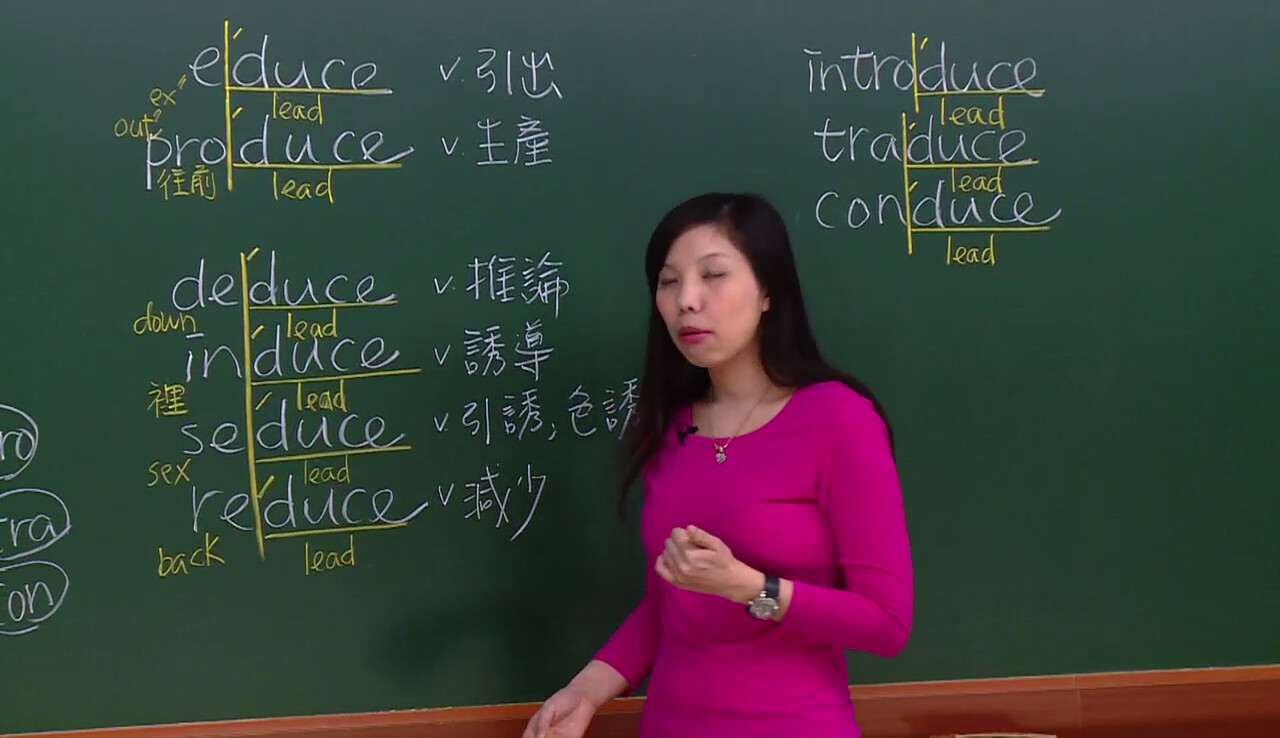 educe v. 引出
ex=
out lead
produce v. 生產
往前 lead
deduce v. 推論
down lead
induce v 誘導
裡 lead
seduce v 引誘,色誘
sex lead
reduce v 減少
back lead
introduce
lead
traduce
lead
conduce
lead
ro
tra
con